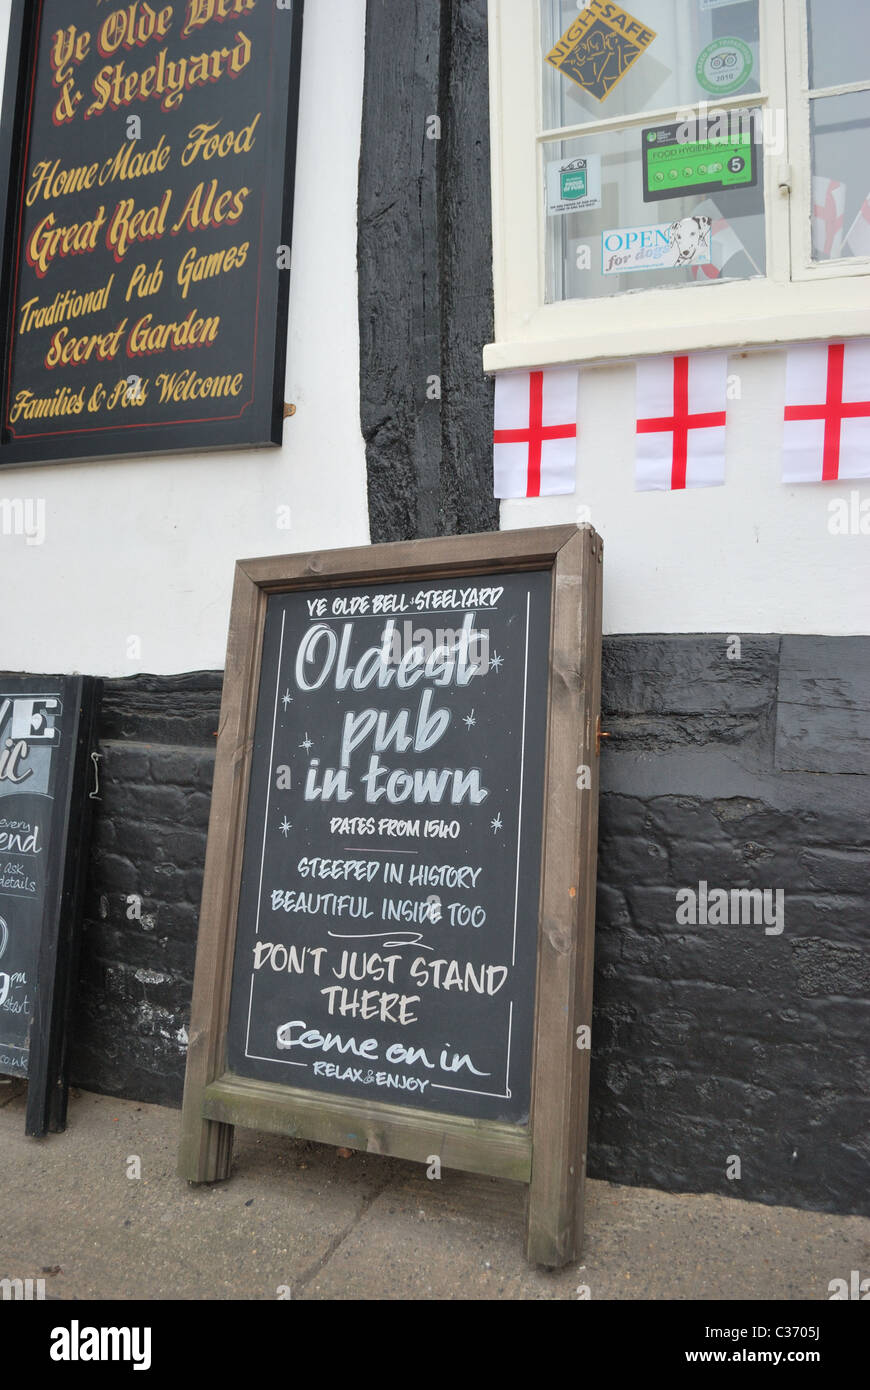 Ye Olde Bell
& Steelyard
Home Made Food
Great Real Ales
Traditional Pub Games
Secret Garden
Families & Pets Welcome
NIGHTSAFE
2010
FOOD HYGIENE RATING
5
PROUD OF PUBS
OPEN
for dogs
YE OLDE BELL & STEELYARD
Oldest
pub
in town
DATES FROM 1540
STEEPED IN HISTORY
BEAUTIFUL INSIDE TOO
DON'T JUST STAND
THERE
Come on in
RELAX & ENJOY
VE
ic
every
end
ask
details
9pm
start
co.uk
alamy
Image ID: C3705J
www.alamy.com